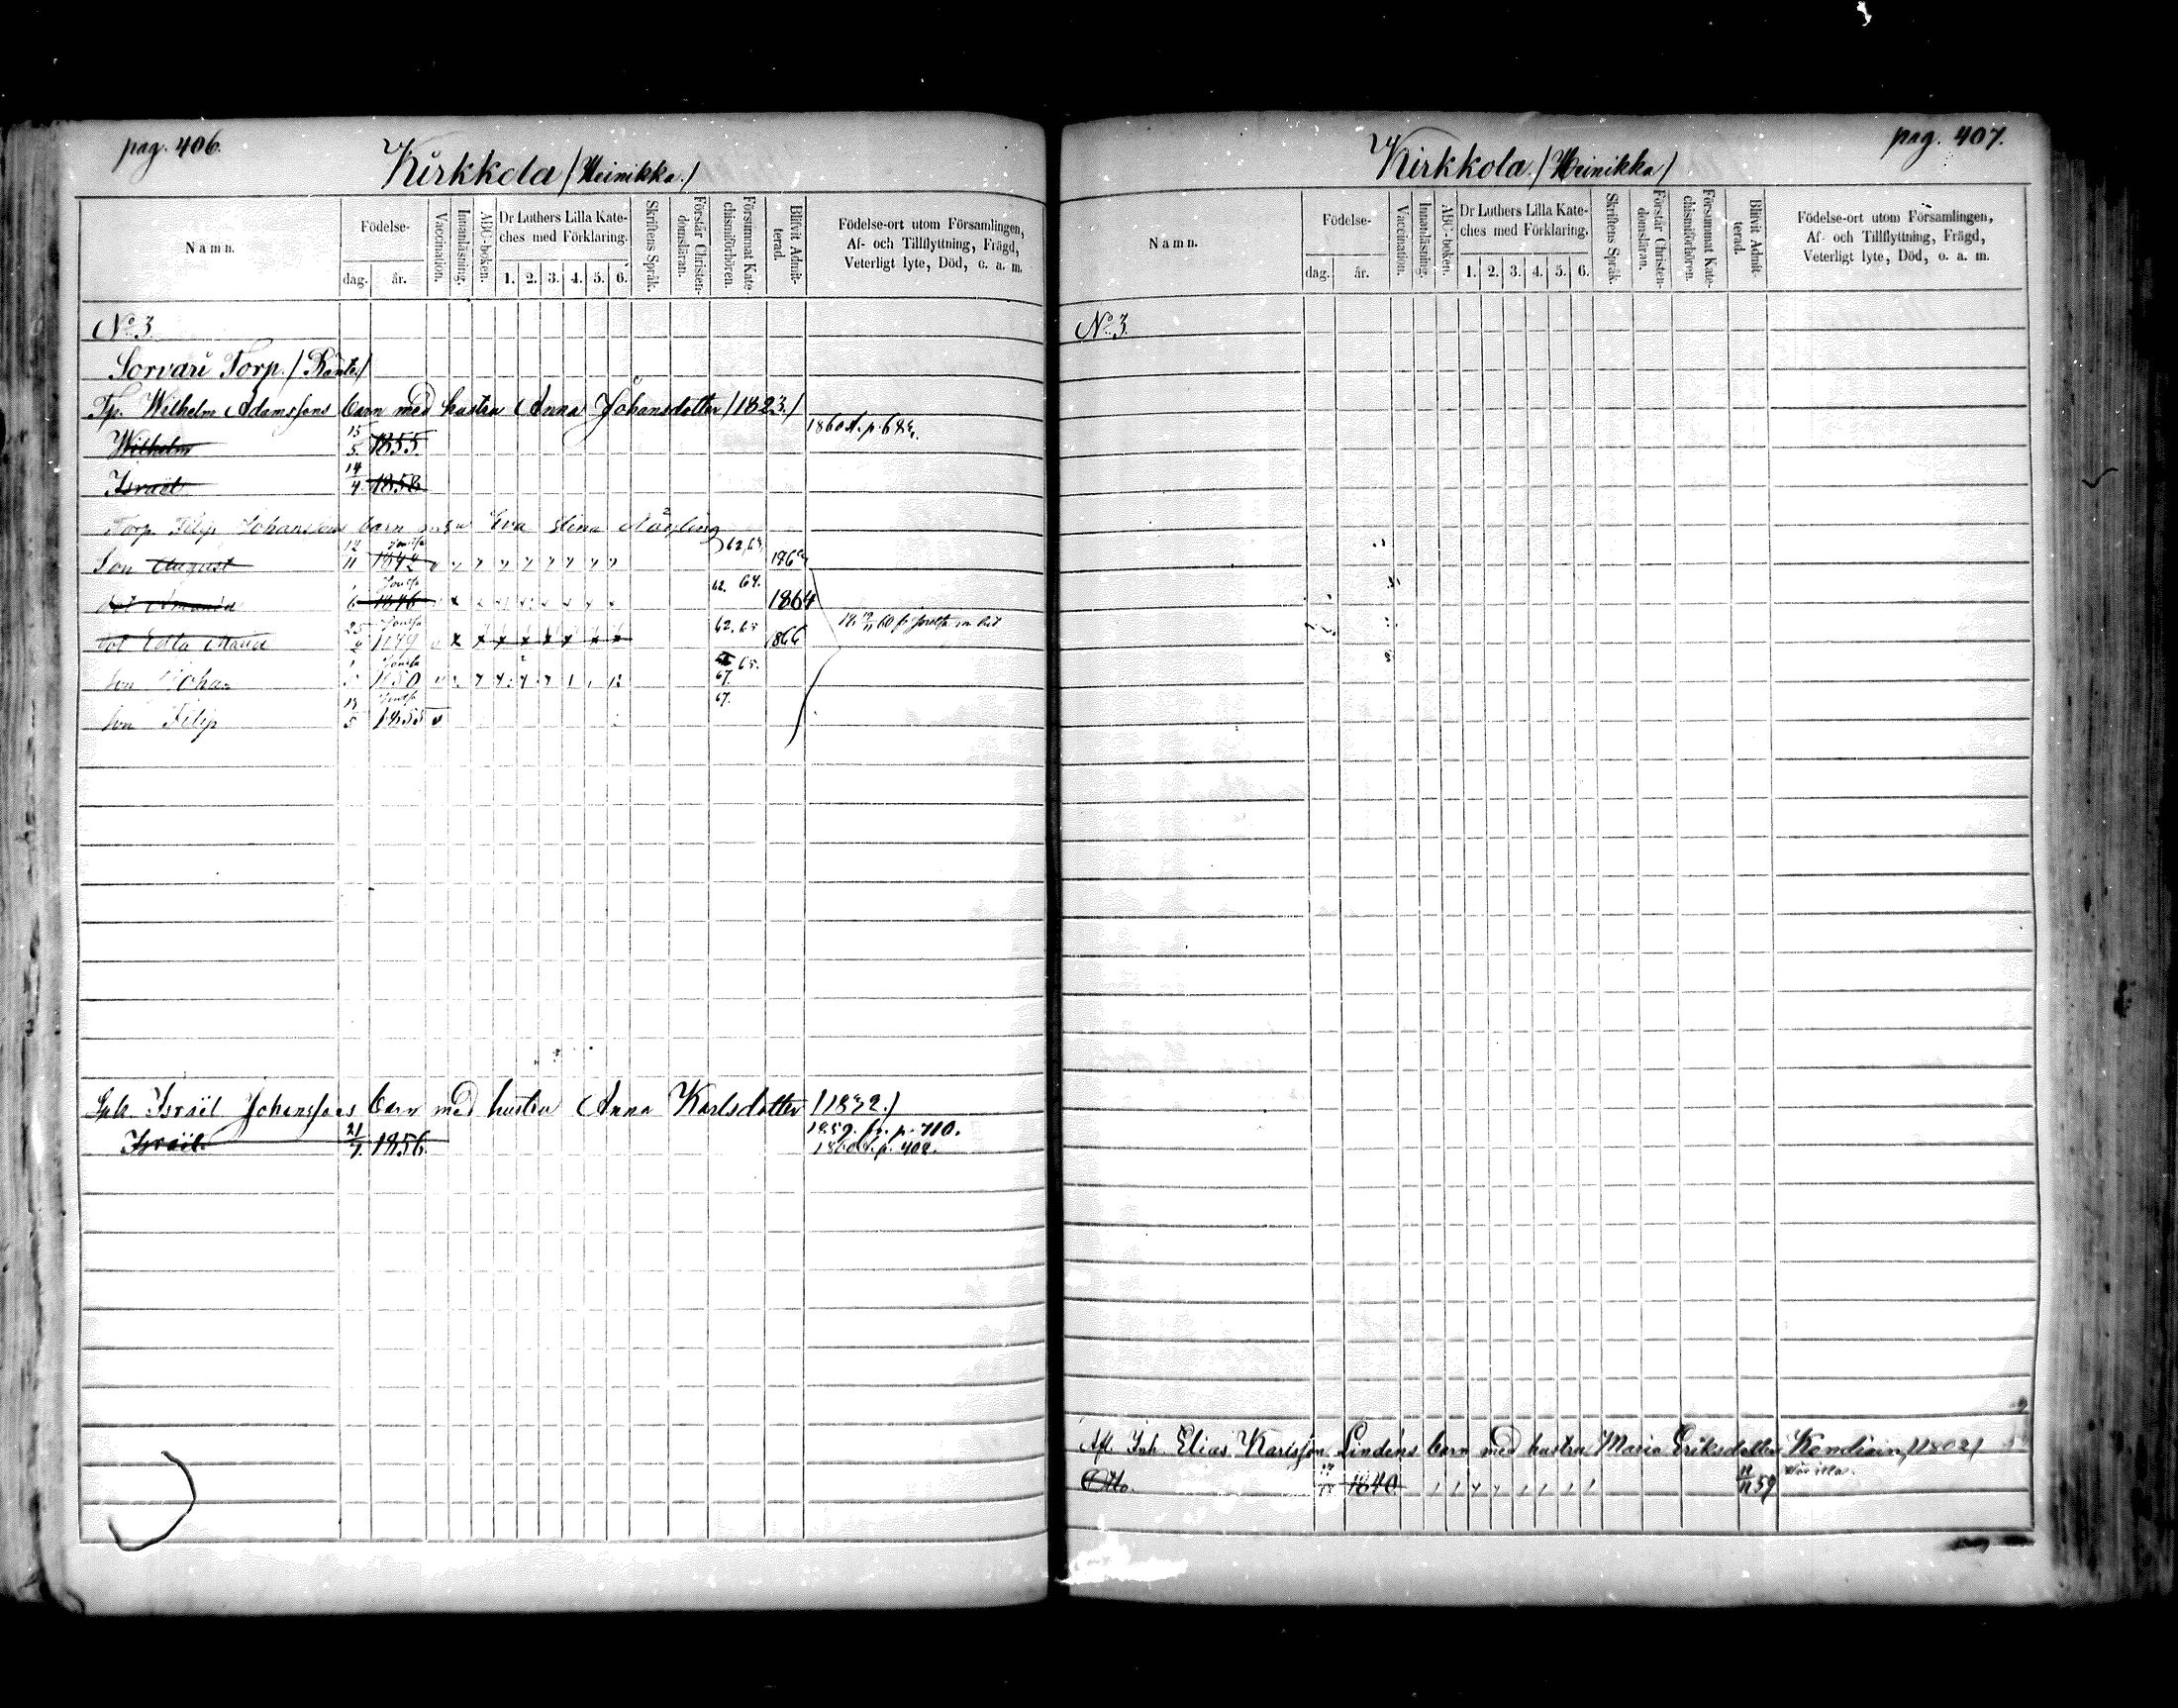 pag. 406.
Kirkkola / Heinikka. /
Namn.
Födelse-
dag.
år.
Vaccination.
Innanläsning.
ABC-boken.
Dr Luthers Lilla Kate-
ches med Förklaring.
1. 2. 3. 4. 5. 6.
Skriftens Språk.
Förstår Christen-
domsläran.
Försummat Kate-
chismiförhören.
Blifvit Admit-
terad.
Födelse-ort utom Församlingen,
Af- och Tillflyttning, Frägd,
Veterligt lyte, Död, o. a. m.
No 3.
Sorvari Torp.
Tp. Wilhelm Adamssons barn med hustru Anna Johansdotter / 1823. /
Wilhelm 15/5 1855
Israël 14/4 1858
Torp. Filip Johanssons barn Eva Stina
Son August 12/11 1842 62, 64
1846 62. 64. 1864
Edla Maria 25 1849 62. 65 1866
Son Johan 1850 65. 67.
Son Filip 13/5 1853 67.
Israël Johanssons barn med hustru Anna Karlsdotter / 1832. /
Israël 21/7 1856. 1859. fr. p. 710.
p. 408.
pag. 407.
Kirkkola. / Heinikka /
Namn.
Födelse-
dag.
år.
Vaccination.
Innanläsning.
ABC-boken.
Dr Luthers Lilla Kate-
ches med Förklaring.
1. 2. 3. 4. 5. 6.
Skriftens Språk.
Förstår Christen-
domsläran.
Försummat Kate-
chismiförhören.
Blifvit Admit-
terad.
Födelse-ort utom Församlingen,
Af- och Tillflyttning, Frägd,
Veterligt lyte, Död, o. a. m.
No 3.
Afl. Inh. Elias Karlsson Lindéns barn med hustru Maria Eriksdotter / 1802 /
Otto. 1840 59